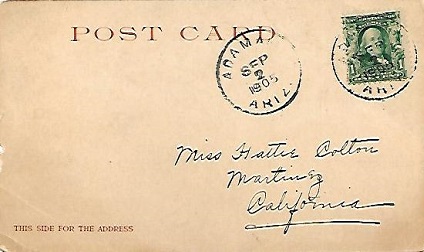 POST CARD
ADAMA
SEP
2
1905
ARIZ.
1
ARI
Miss Hattie Colton
Martinez
California
THIS SIDE FOR THE ADDRESS